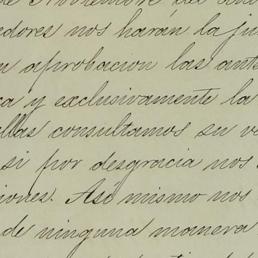 Noviembre del
edores nos harán la ju
n aprobacion las ant
a y exclusivamente la
llas consultamos su v
si por desgracia nos
iones. Asi mismo nos
de ninguna manera